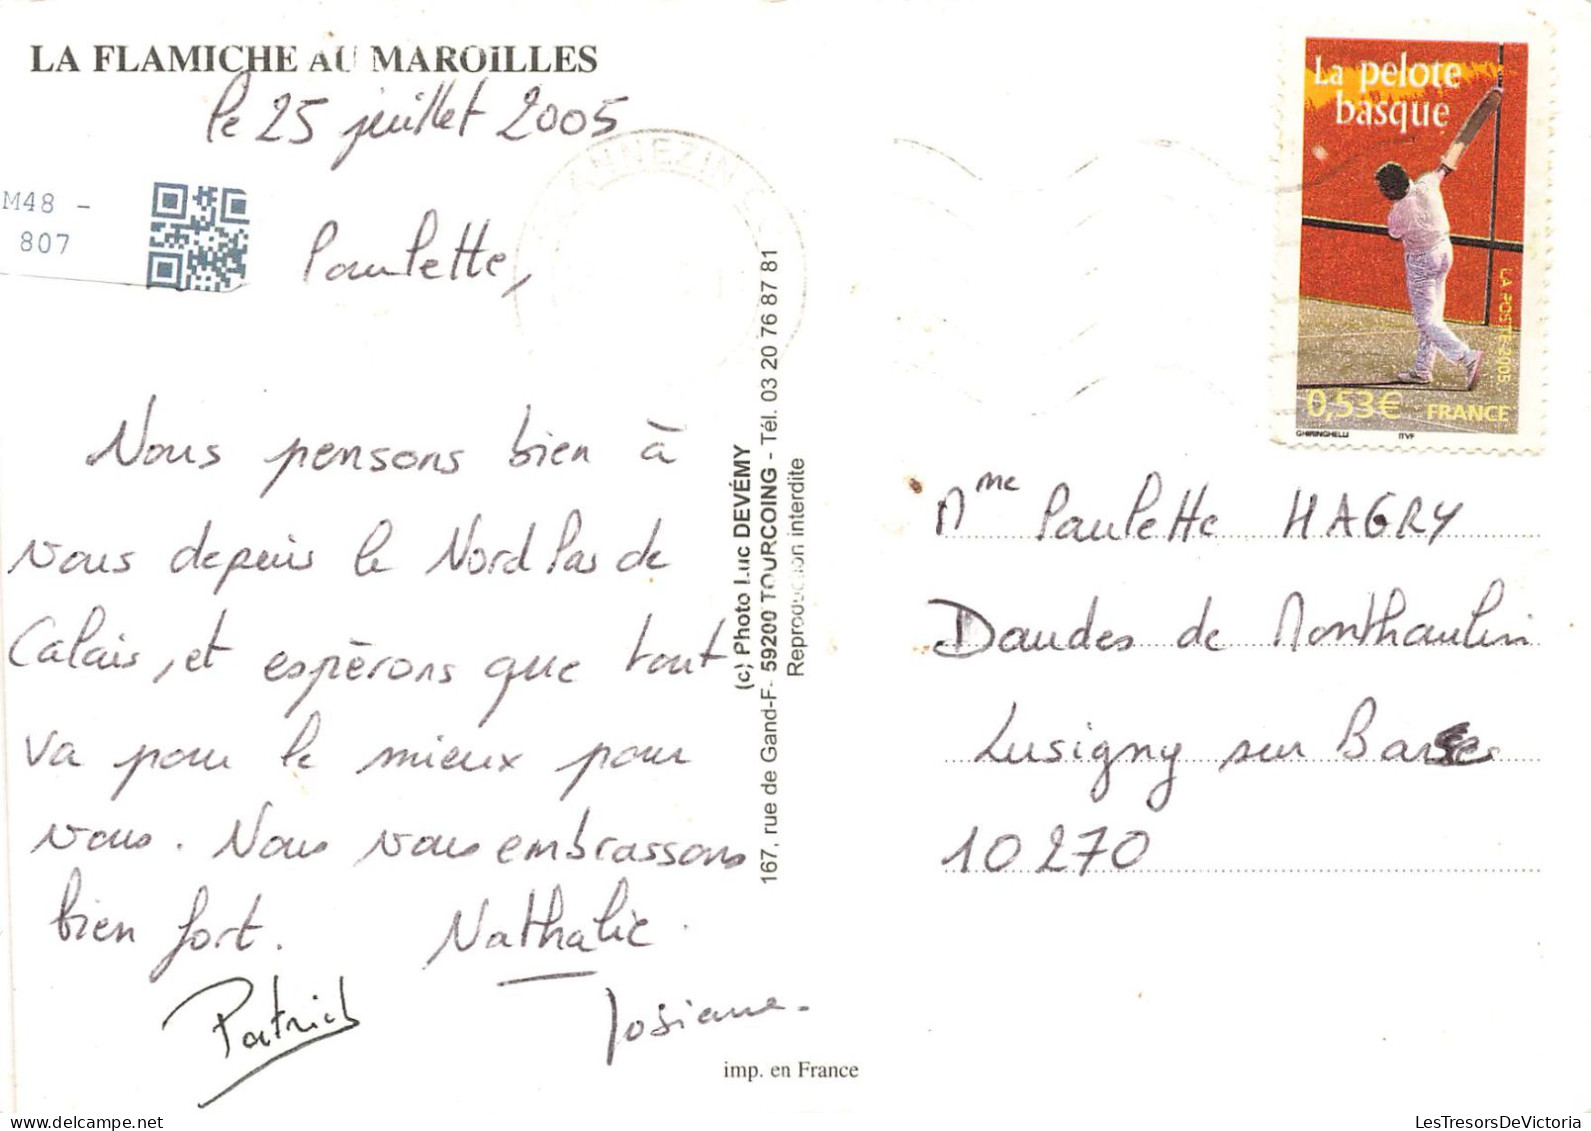 LA FLAMICHE AU MAROiLLES
le 25 juillet 2005
M48 -
807
Paulette,
Nous pensons bien à
vous depuis le Nord Pas de
Calais, et espèrons que tout
va pour le mieux pour
vous. Nous vous embrassons
bien fort. Nathalie.
Patrick
Josiane.
imp. en France
(c) Photo Luc DEVÉMY
167, rue de Gand-F- 59200 TOURCOING - Tél. 03 20 76 87 81
Reproduction interdite
La pelote
basque
LA POSTE 2005
0,53€ FRANCE
GHIRINGHELLI ITVF
Mme Paulette HAGRY
Daudes de Monthaulin
Lusigny sur
10270
LesTresorsDeVictoria